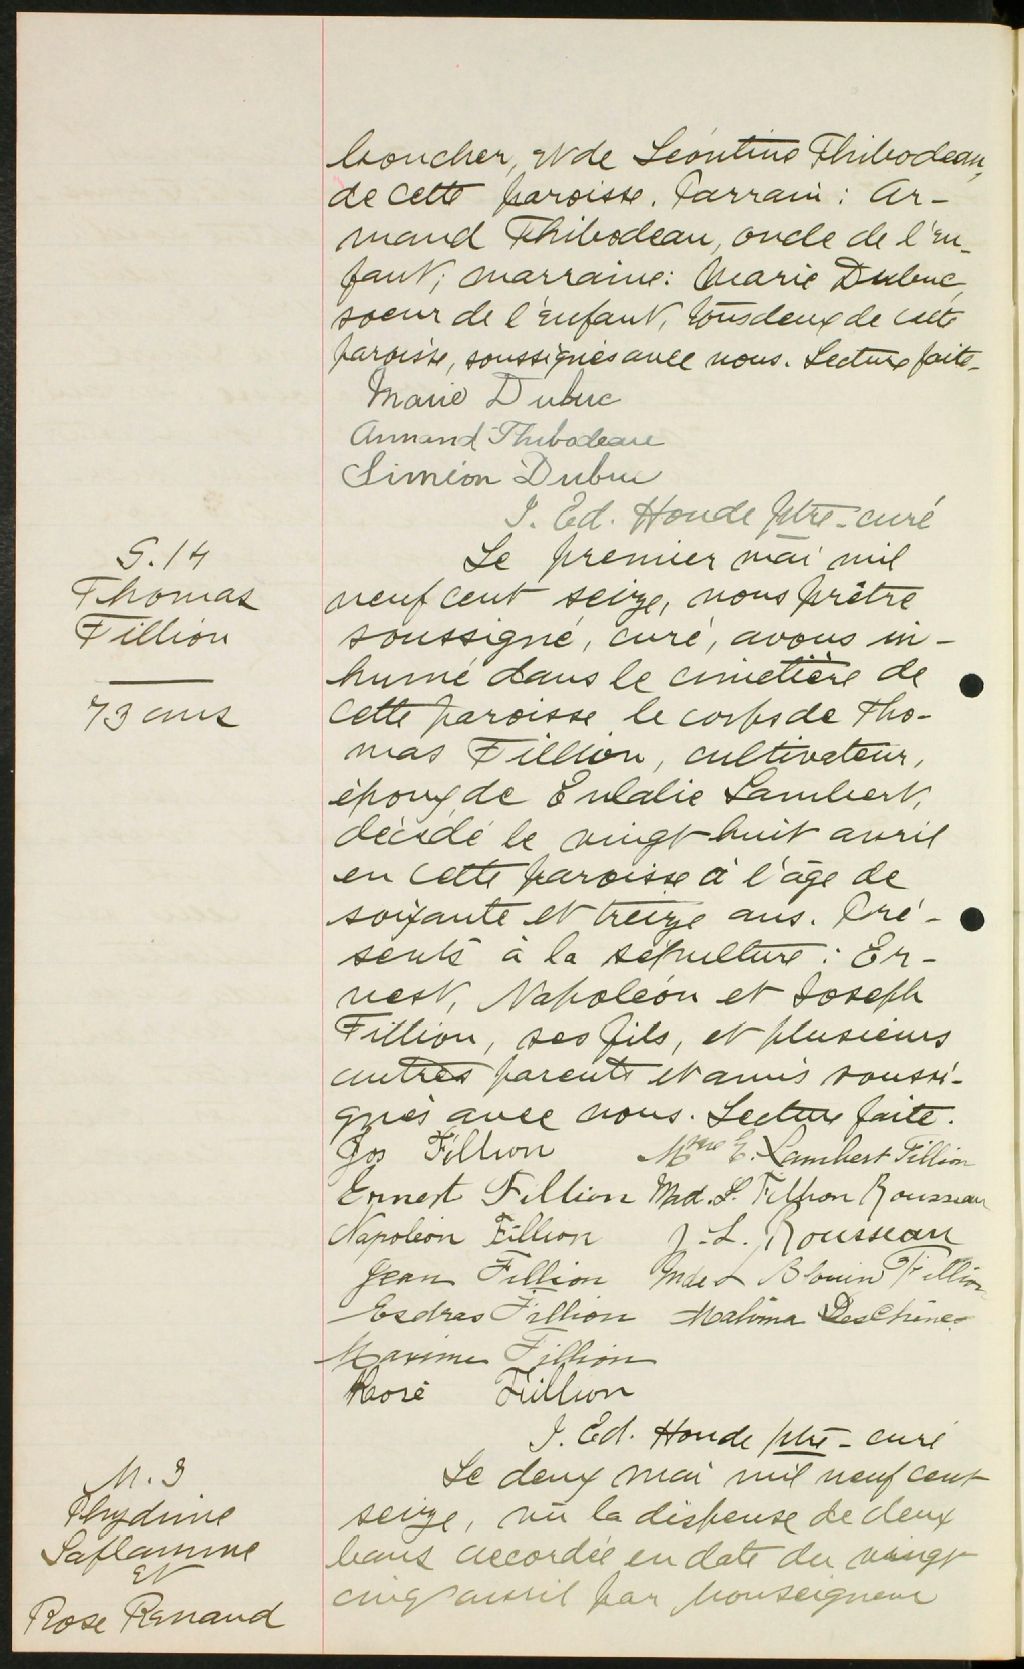 boucher, et de Léontine Thibodeau,
de cette paroisse. Parrain : Ar-
mand Thibodeau, oncle de l'en-
fant; marraine: Marie Dubuc,
soeur de l'enfant, tous deux de cette
paroisse, soussignés avec nous. Lecture faite.
Marie Dubuc
Armand Thibodeau
Siméon Dubuc
J. Ed. Houde ptre-curé
S. 14
Thomas
Fillion
73 ans
Le premier mai mil
neuf cent seize, nous prêtre
soussigné, curé, avons in-
humé dans le cimetière de
cette paroisse le corps de Tho-
mas Fillion, cultivateur,
époux de Eulalie Lambert,
décédé le vingt-huit avril
en cette paroisse à l'âge de
soixante et treize ans. Pré-
sents à la sépulture : Er-
nest, Napoléon et Joseph
Fillion, ses fils, et plusieurs
autres parents et amis soussi-
gnés avec nous. Lecture faite.
Jos Fillion Mme E. Lambert Fillion
Ernest Fillion Mad. L. Fillion Rousseau
Napoléon Fillion J.-L. Rousseau
Jean Fillion Blouin Fillion
Esdras Fillion Malvina DesChênes
Maxime Fillion
Fillion
J. Ed. Houde ptre-curé
M. 3
Phydime
Laflamme
et
Rose Renaud
Le deux mai mil neuf cent
seize, vu la dispense de deux
bans accordée en date du vingt
cinq avril par Monseigneur